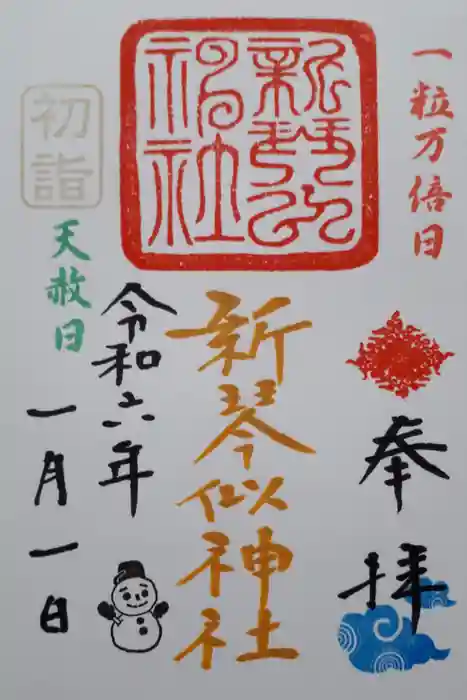 一粒万倍日
奉拝
新琴似
神社
新琴似神社
令和六年
初詣
天赦日
一月一日